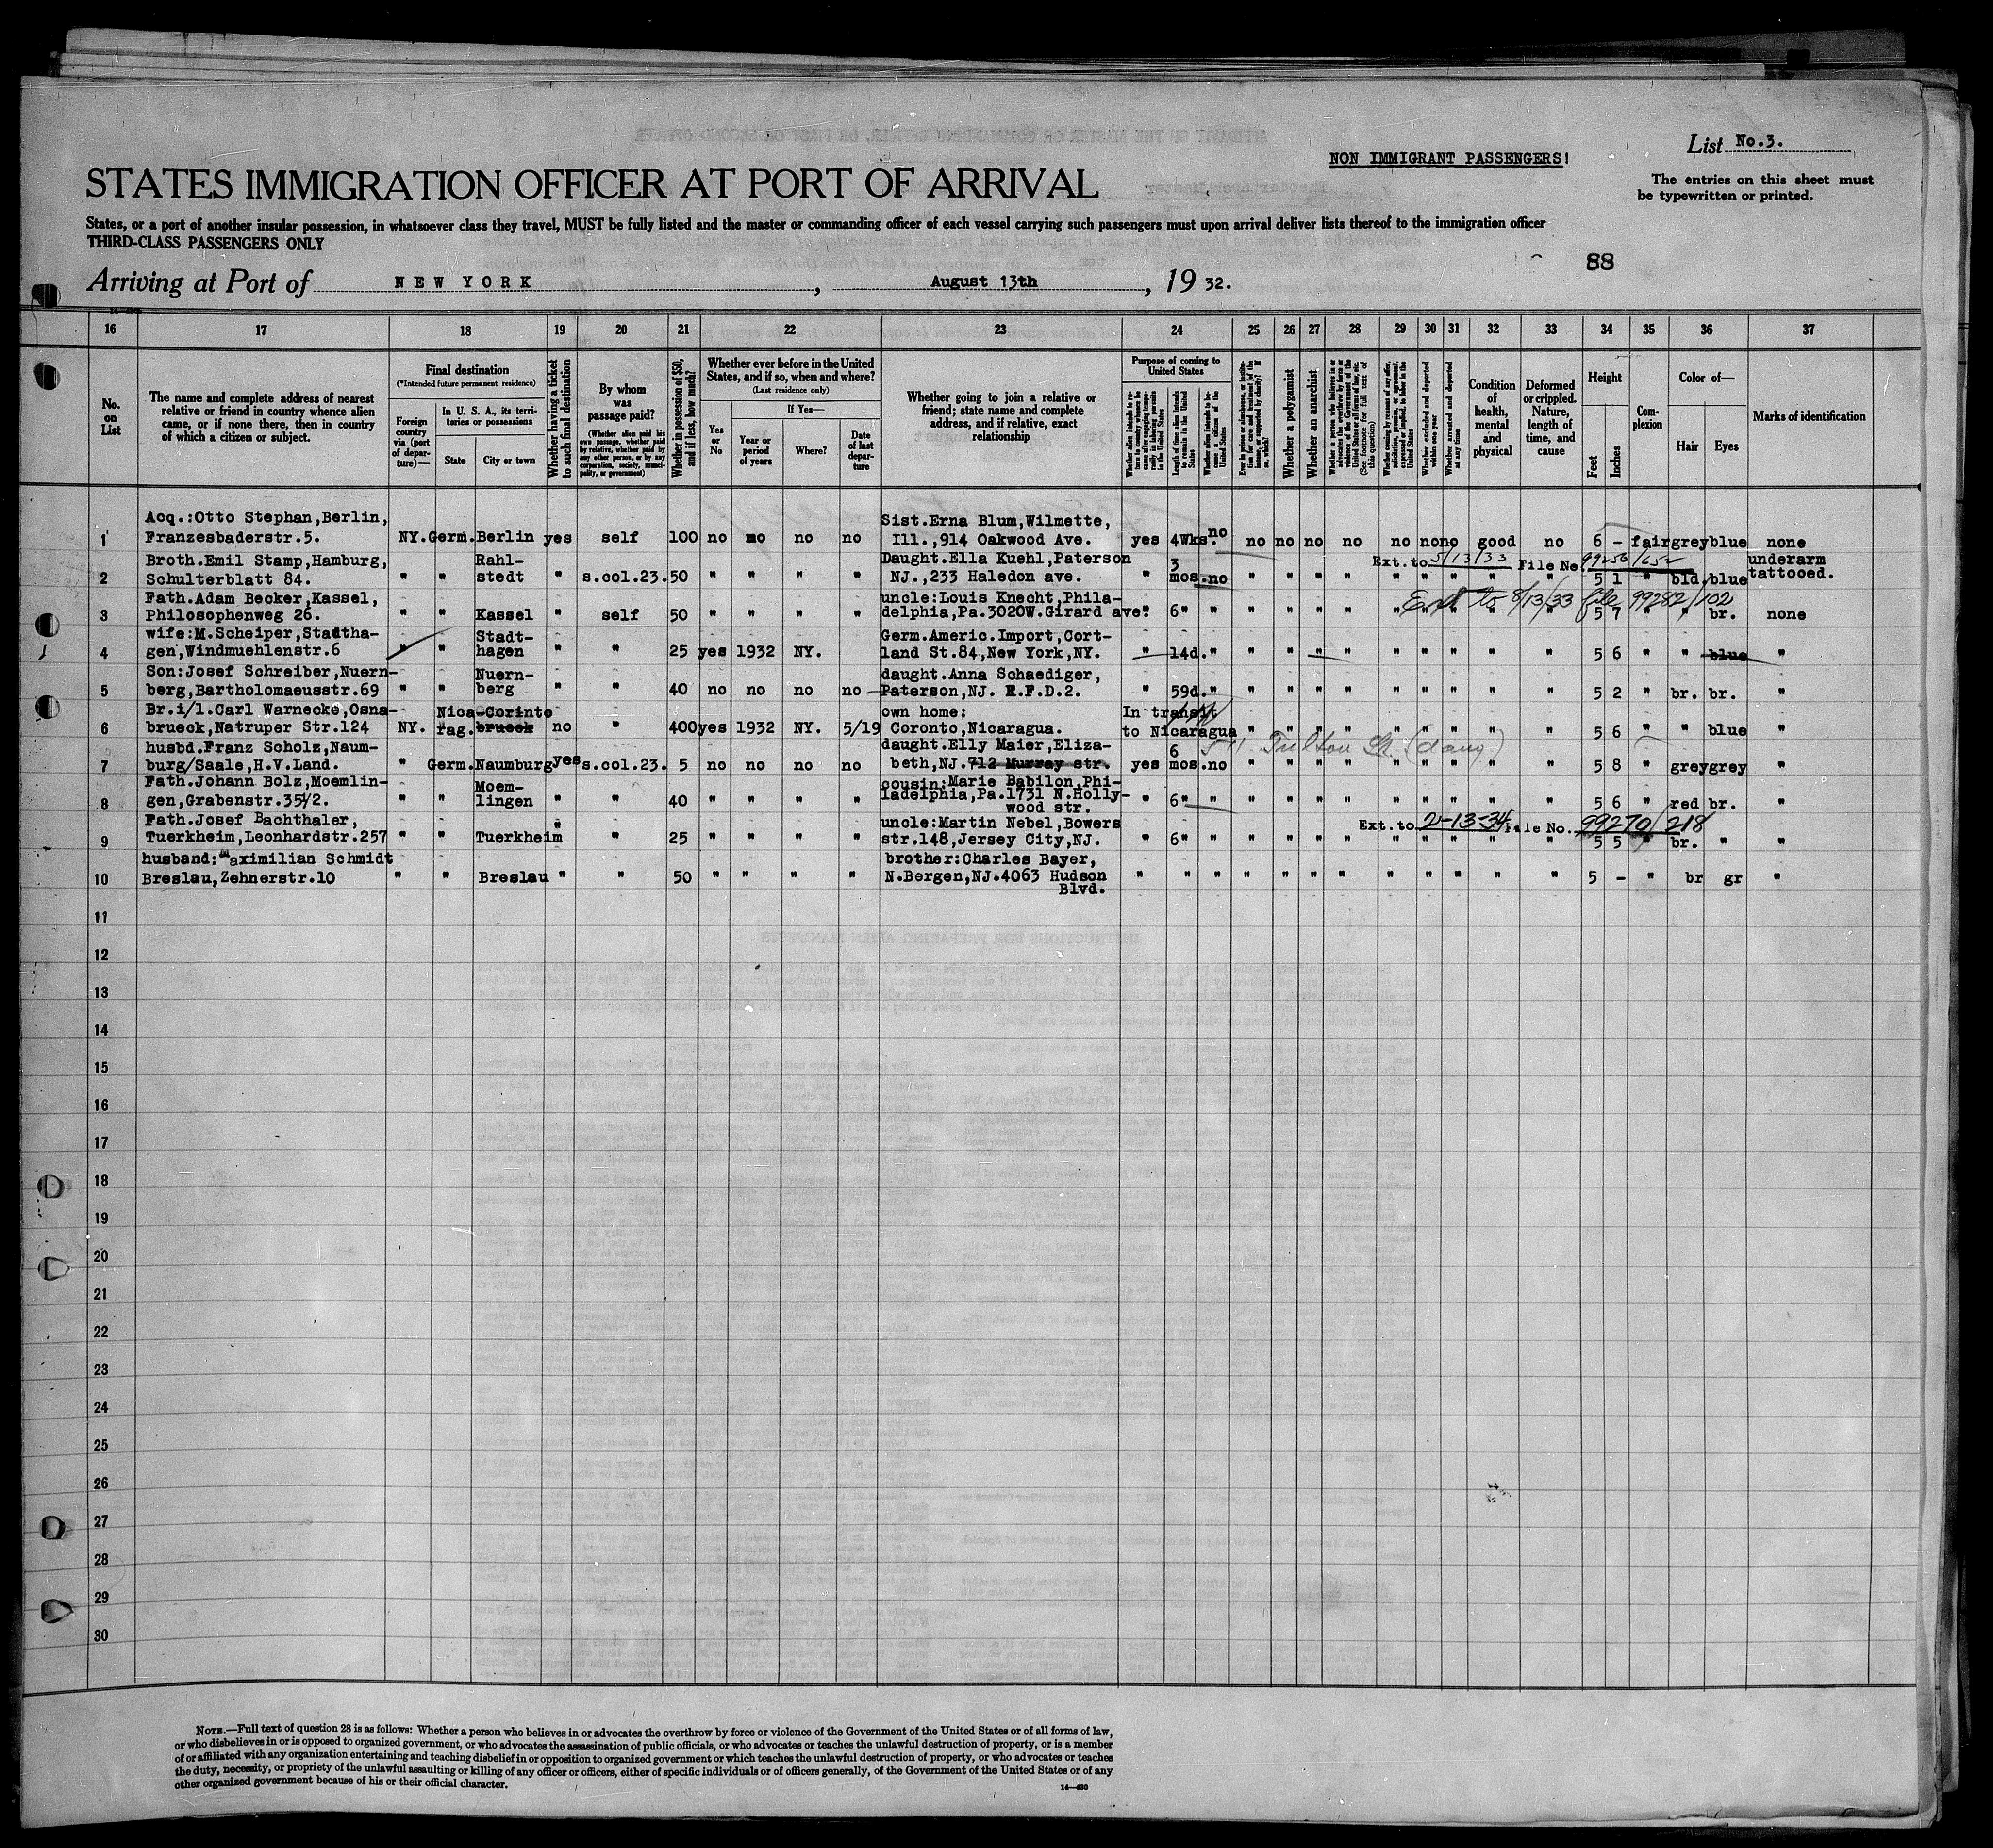 NON IMMIGRANT PASSENGERS!
List No.3.
STATES IMMIGRATION OFFICER AT PORT OF ARRIVAL
The entries on this sheet must
be typewritten or printed.
States, or a port of another insular possession, in whatsoever class they travel, MUST be fully listed and the master or commanding officer of each vessel carrying such passengers must upon arrival deliver lists thereof to the immigration officer
THIRD-CLASS PASSENGERS ONLY
88
Arriving at Port of NEW YORK, August 13th, 1932.
16 17 18 19 20 21 22 23 24 25 26 27 28 29 30 31 32 33 34 35 36 37
No. on List
The name and complete address of nearest relative or friend in country whence alien came, or if none there, then in country of which a citizen or subject.
Final destination
(*Intended future permanent residence)
Foreign country via (port of departure)—
In U. S. A., its territories or possessions
State
City or town
Whether having a ticket to such final destination
By whom was passage paid?
(Whether alien paid his own passage, whether paid by relative, whether paid by any other person, or by any corporation, society, municipality, or government)
Whether in possession of $50, and if less, how much?
Whether ever before in the United States, and if so, when and where?
(Last residence only)
Yes or No
If Yes—
Year or period of years
Where?
Date of last departure
Whether going to join a relative or friend; state name and complete address, and if relative, exact relationship
Purpose of coming to United States
Length of time alien intends to remain in the United States
Whether a polygamist
Whether an anarchist
(See footnote for full text of this question)
Whether excluded and deported within one year
Whether arrested and deported at any time
Condition of health, mental and physical
Deformed or crippled. Nature, length of time, and cause
Height
Feet
Inches
Complexion
Color of—
Hair
Eyes
Marks of identification
Acq.:Otto Stephan,Berlin, Sist.Erna Blum,Wilmette,
1 Franzesbaderstr.5. NY. Germ. Berlin yes self 100 no no no no Ill.,914 Oakwood Ave. yes 4Wks. no no no no no no no no good no 6 - fair grey blue none
Broth.Emil Stamp,Hamburg, Rahl- Daught.Ella Kuehl,Paterson 3 Ext. to 5/13/33 File No. underarm
2 Schulterblatt 84. " " stedt " s.col.23. 50 " " " " NJ.,233 Haledon ave. " mos. no " " " " " " " " " 5 1 " bld. blue tattooed.
Fath.Adam Becker,Kassel, uncle:Louis Knecht,Phila- Ext to 8/13/33 file 99282/102
3 Philosophenweg 26. " " Kassel " self 50 " " " " delphia,Pa.3020W.Girard ave. " 6" " " " " " " " " " " 5 7 " " br. none
wife:M.Scheiper,Stadtha- Stadt- Germ.Americ.Import,Cort-
4 gen,Windmuehlenstr.6 " " hagen " " 25 yes 1932 NY. land St.84,New York,NY. " 14d. " " " " " " " " " " 5 6 " " blue "
Son:Josef Schreiber,Nuern- Nuern- daught.Anna Schaediger,
5 berg,Bartholomaeusstr.69 " " berg " " 40 no no no no Paterson,NJ. R.F.D.2. " 59d. " " " " " " " " " " 5 2 " br. br. "
Br.i/l.Carl Warnecke,Osna- Nica- Corinto own home: In transit
6 brueck,Natruper Str.124 NY. rag. brueck no " 400 yes 1932 NY. 5/19 Coronto,Nicaragua. to Nicaragua " " " " " " " " " 5 6 " " blue "
husbd.Franz Scholz,Naum- daught.Elly Maier,Eliza- 6 511 Fulton St. (daug)
7 burg/Saale,H.V.Land. " Germ. Naumburg yes s.col.23. 5 no no no no beth,NJ.712 Murray str. yes mos. no " " " " " " " " " 5 8 " grey grey "
Fath.Johann Bolz,Moemlin- Moem- cousin:Marie Babilon,Phi-
8 gen,Grabenstr.35½. " " lingen " " 40 " " " " ladelphia,Pa.1731 N.Holly- " 6" " " " " " " " " " " 5 6 " red br. "
wood str.
Fath.Josef Bachthaler, uncle:Martin Nebel,Bowers Ext. to 2-13-34 File No. 99270/218
9 Tuerkheim,Leonhardstr.257 " " Tuerkheim " " 25 " " " " str.148,Jersey City,NJ. " 6" " " " " " " " " " " 5 5 " br. " "
husband:Maximilian Schmidt brother:Charles Bayer,
10 Breslau,Zehnerstr.10 " " Breslau " " 50 " " " " N.Bergen,NJ.4063 Hudson " " " " " " " " " " " " 5 - " br gr "
Blvd.
11
12
13
14
15
16
17
18
19
20
21
22
23
24
25
26
27
28
29
30
NOTE.—Full text of question 28 is as follows: Whether a person who believes in or advocates the overthrow by force or violence of the Government of the United States or of all forms of law,
or who disbelieves in or is opposed to organized government, or who advocates the assassination of public officials, or who advocates or teaches the unlawful destruction of property, or is a member
of or affiliated with any organization entertaining and teaching disbelief in or opposition to organized government or which teaches the unlawful destruction of property, or who advocates or teaches
the duty, necessity, or propriety of the unlawful assaulting or killing of any officer or officers, either of specific individuals or of officers generally, of the Government of the United States or of any
other organized government because of his or their official character.
14—430